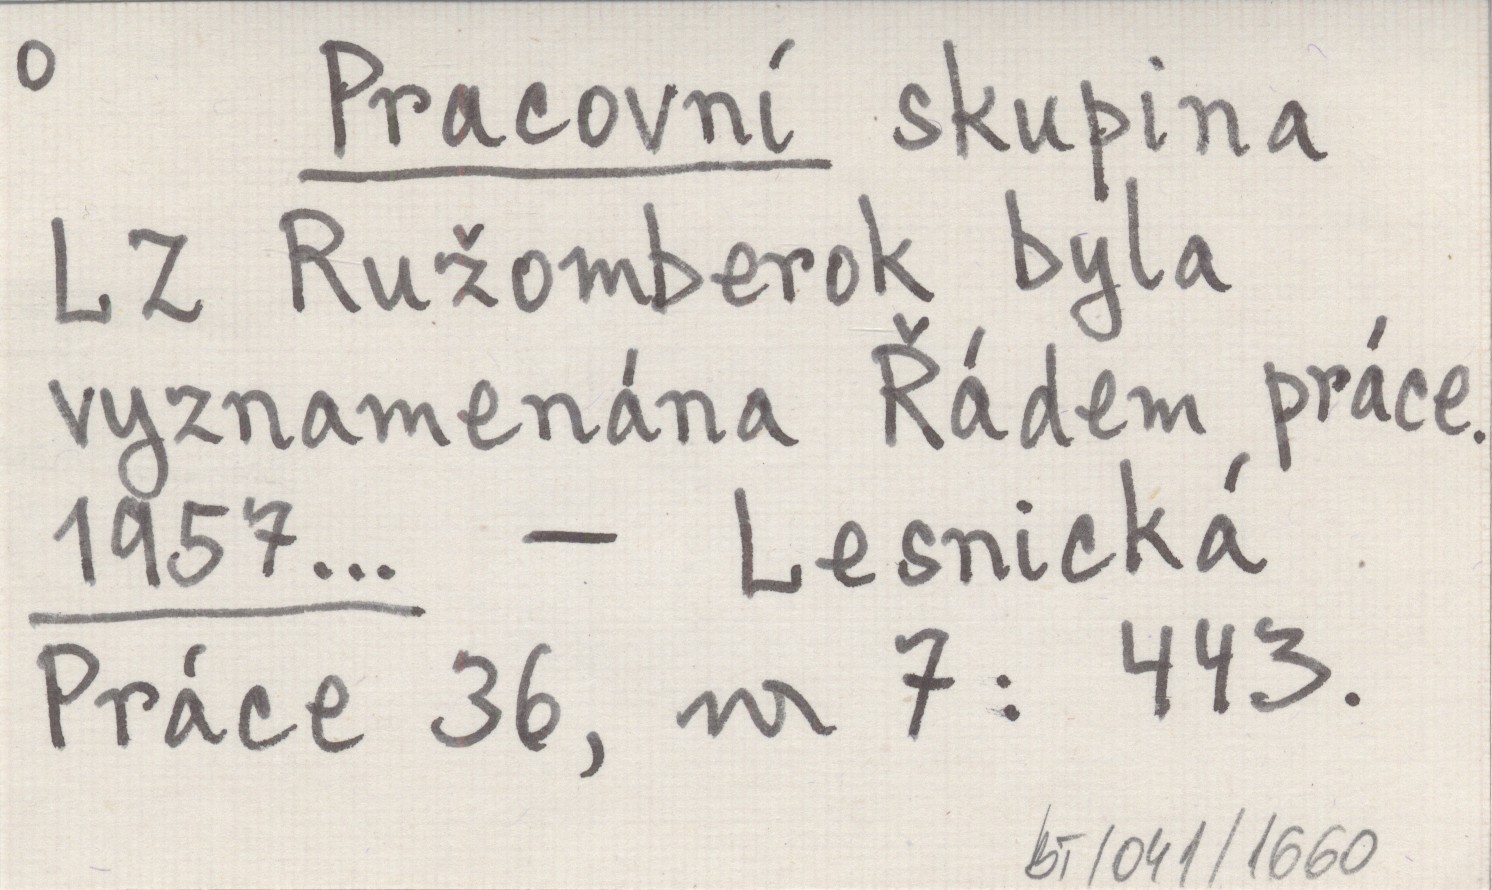 o Pracovní skupina
LZ Ružomberok byla
vyznamenána Řádem práce.
1957... — Lesnická
Práce 36, nr 7: 443.
bT/041/1660